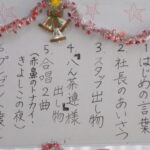 1 はじめの言葉
2 社長のあいさつ
3 スタッフ出し物
4 八ん茶連様
出し物
5 合唱2曲
(赤鼻のトナカイ・
きよしこの夜)
6 プレゼント